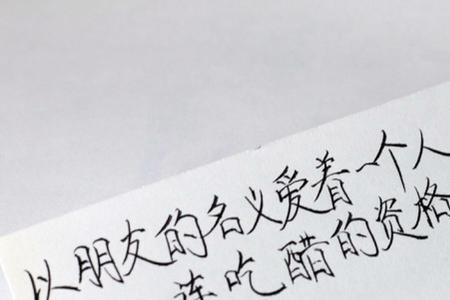 以朋友的名义爱着一个人
连吃醋的资格